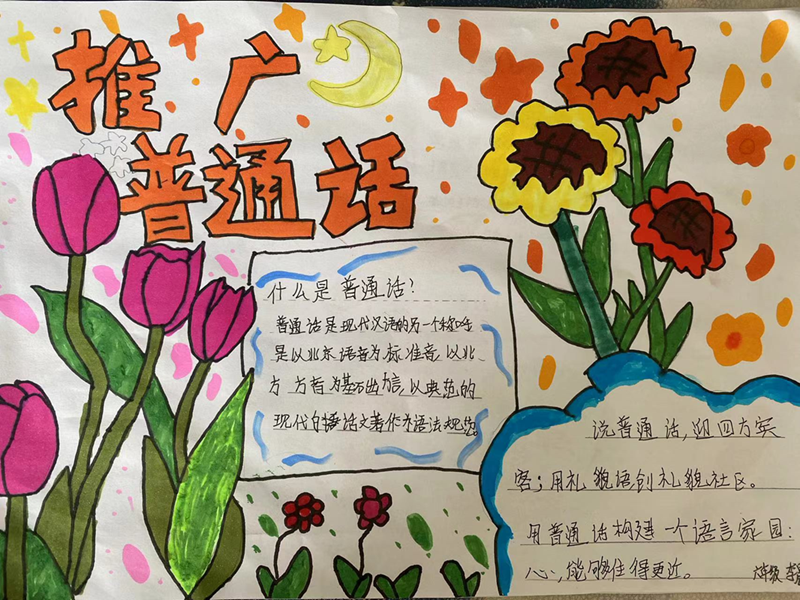 推广
普通话
什么是普通话？
普通话是现代汉语的另一个称呼
是以北京语音为标准音，以北
方方言为基础方言，以典范的
现代白话文著作为语法规范
说普通话，迎四方宾
客；用礼貌语创礼貌社区。
用普通话构建一个语言家园：
心，能够住得更近。
六年级 李